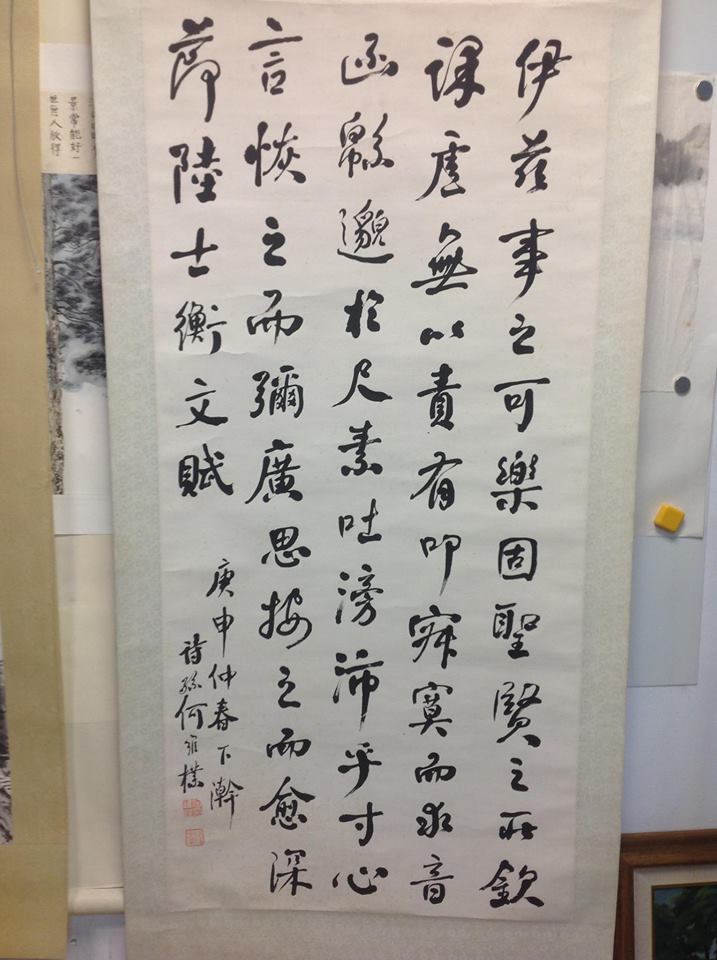 伊茲事之可樂固聖賢之所欽
課虛無以責有叩寂寞而求音
函緜邈於尺素吐滂沛乎寸心
言恢之而彌廣思按之而愈深
節陸士衡文賦
庚申仲春下澣
詩孫何維樸
景常能好一